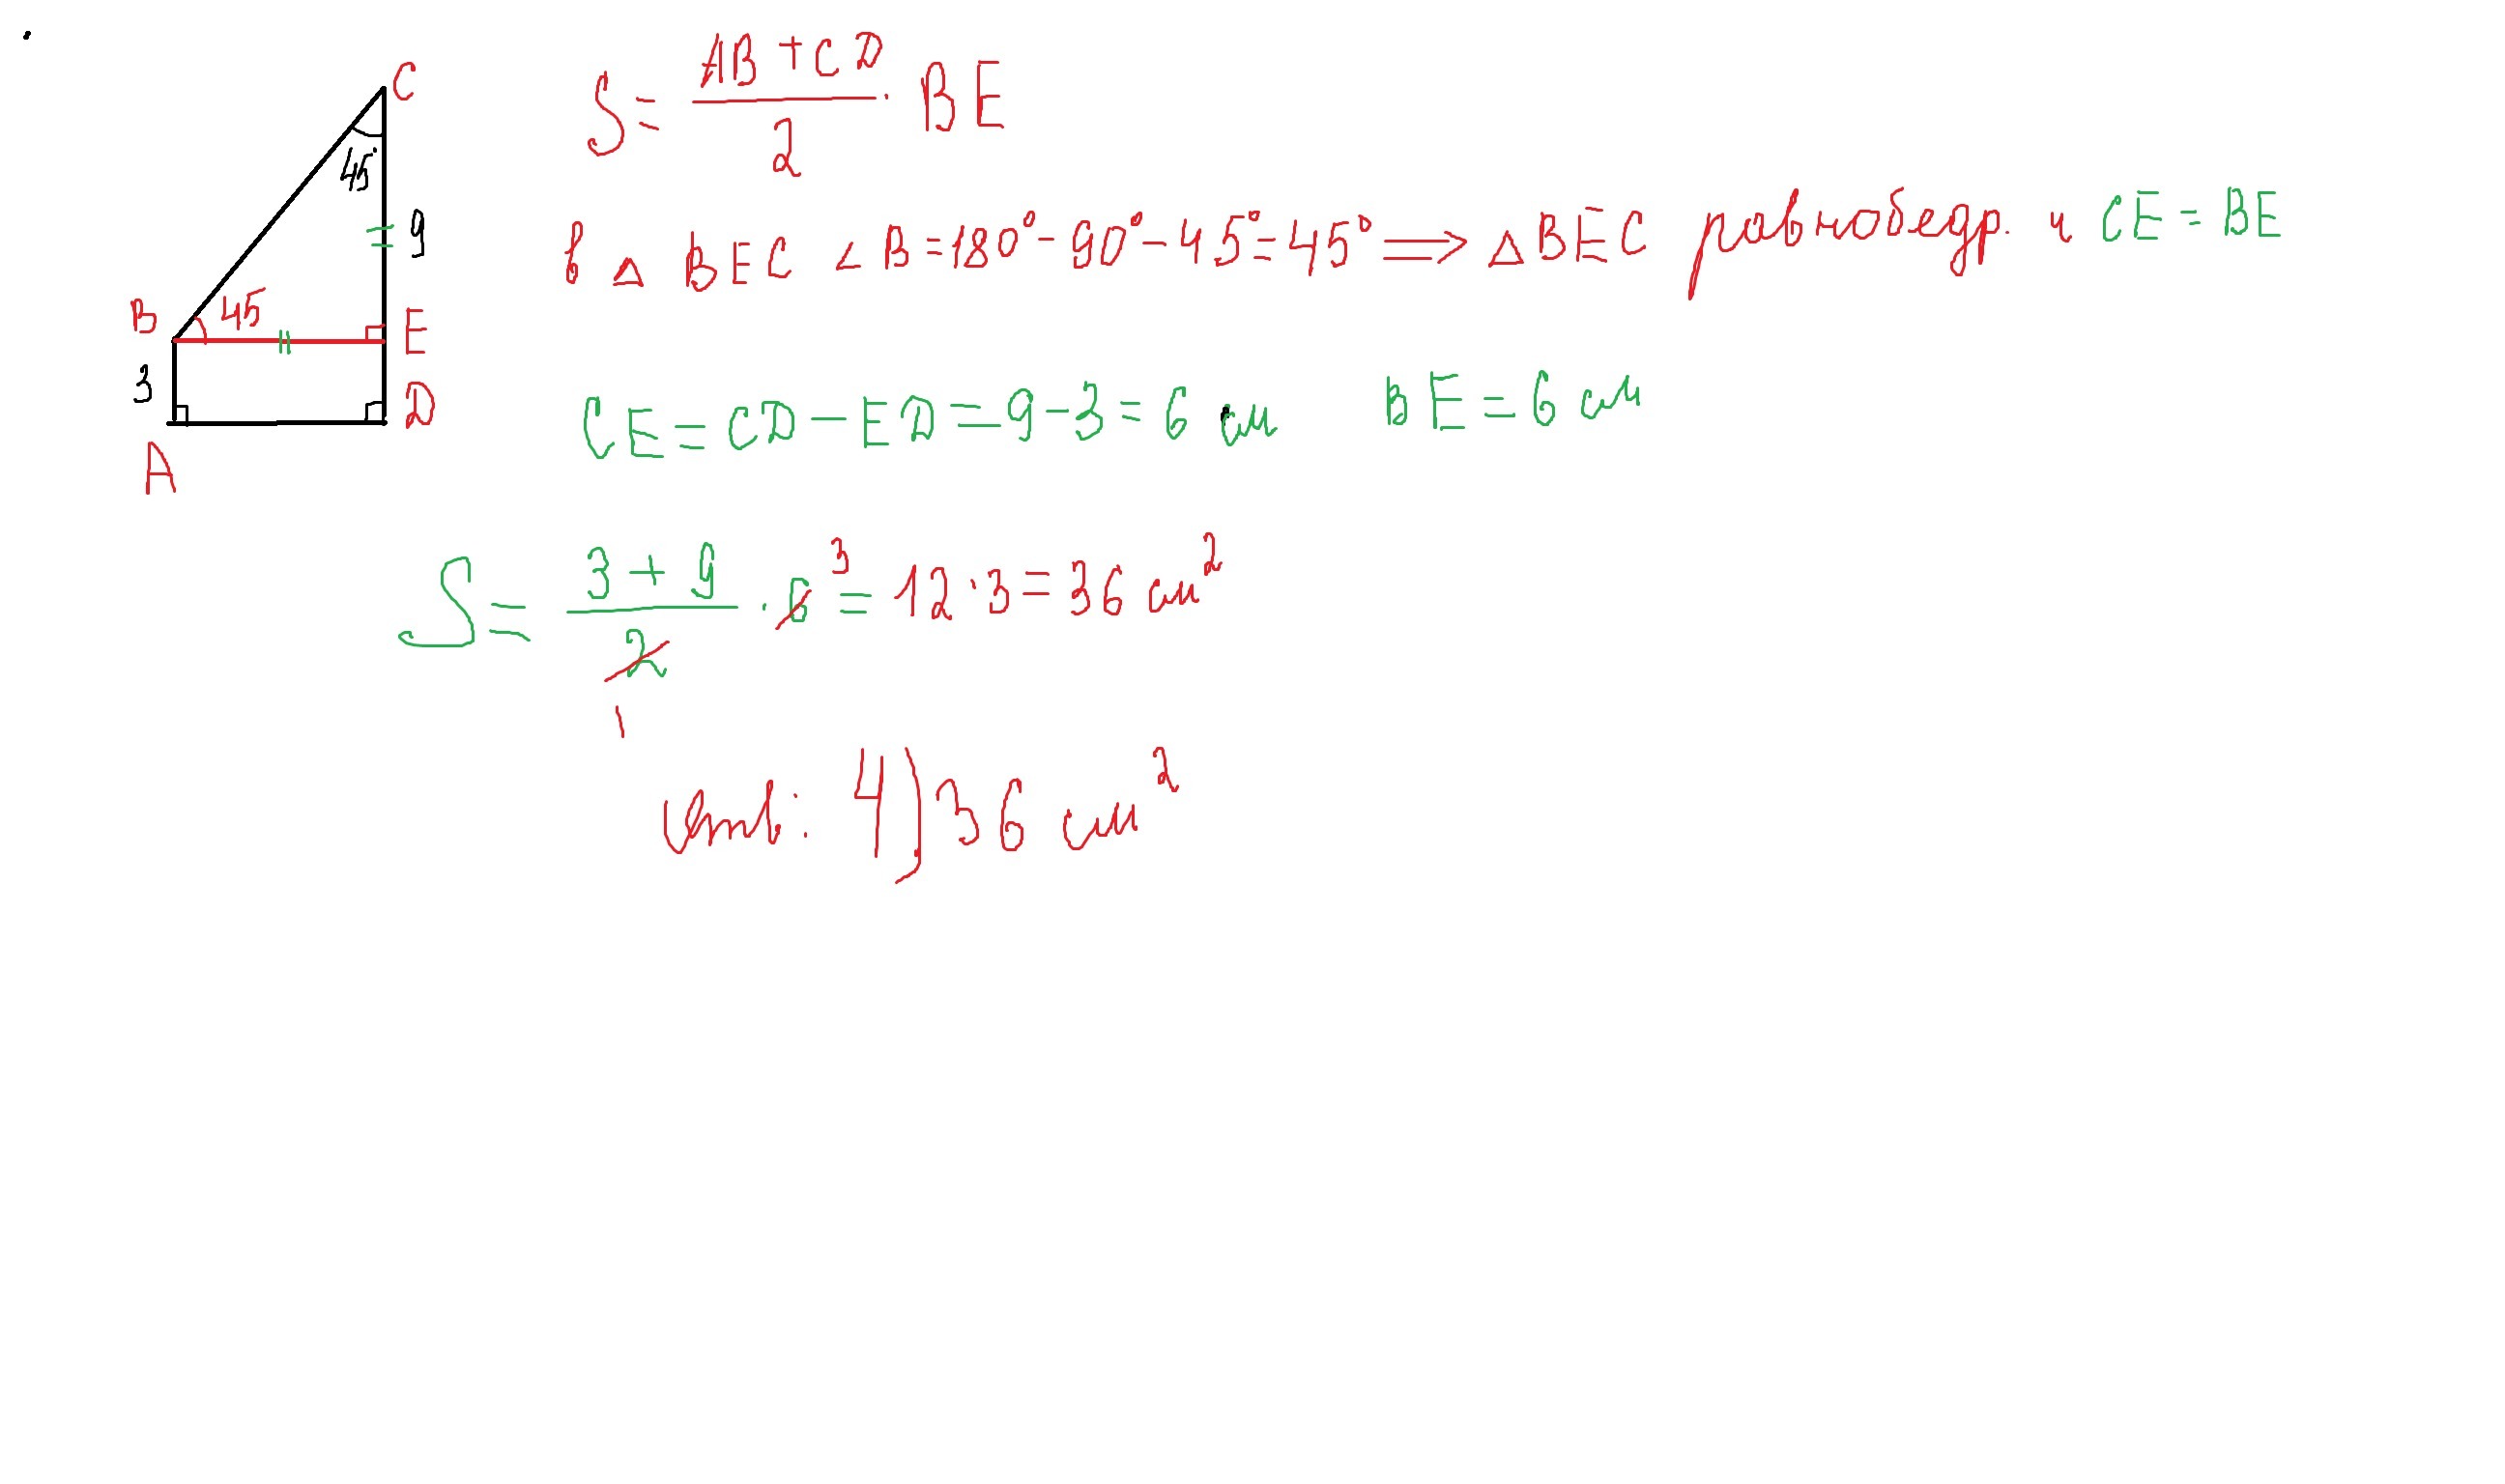 C
45°
9
B
45
E
3
D
A
S = (AB + CD)/2 · BE
В △ BEC ∠ B = 180° - 90° - 45° = 45° ⟹ △ BEC равнобедр. и CE = BE
CE = CD - ED = 9 - 3 = 6 см BE = 6 см
S = (3 + 9)/2 · 6 3 = 12 · 3 = 36 см²
1
Отв: 4) 36 см²